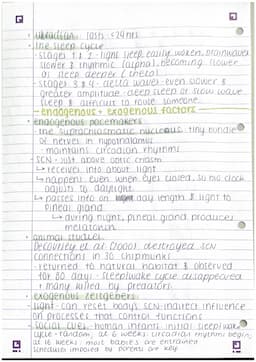 · ultradian: lasts <24hrs
· the sleep cycle
· stages 1 & 2 - light sleep, easily woken, brainwaves
slower & rhythmic (alpha), becoming slower
as sleep deeper (theta)
· stages 3 & 4 - delta waves even slower &
greater amplitude. deep sleep or slow wave
sleep & difficult to rouse someone.
- endogenous + exogenous factors -
· endogenous pacemakers
· the suprachiasmatic nucleus: tiny bundle
of nerves in hypothalamus
· maintains circadian rhythm
· SCN - just above optic chiasm
↳ receives info about light
↳ happens even when eyes closed, so bio clock
adjusts to daylight
↳ passes info on day length & light to
pineal gland
↳ during night, pineal gland produces
melatonin
· animal studies:
DeCoursey et al (2000) destroyed SCN
connections in 30 chipmunks
· returned to natural habitat & observed
for 80 days. sleep/wake cycle disappeared
+ many killed by predators
· exogenous zeitgebers
· light: can reset body's SCN. indirect influence
on processes that control functions
· social cues: human infants initial sleep/wake
cycle = random, at 6 weeks circadian rhythms begin,
at 16 weeks, most babies are entrained.
schedules imposed by parents are key